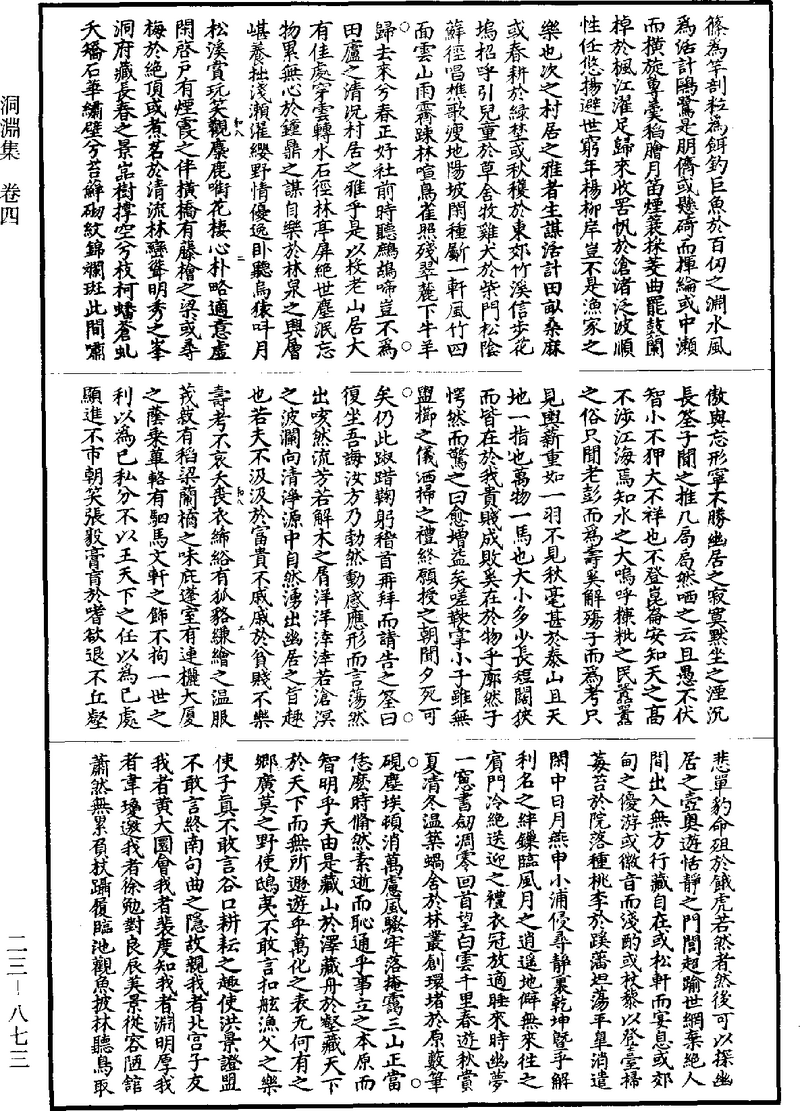 洞淵集 卷四
二三－八七三
篠為竿剖粒為餌釣巨魚於百仞之淵水風
為活計鷗鷺是朋儕或懸碕而揮綸或中瀨
而橫旋蓴羹稻膾月笛煙蓑採菱曲罷鼓闌
棹於楓江濯足歸來收罟帆於滄渚泛波順
性任悠揚避世窮年楊柳岸豈不是漁家之
樂也次之村居之雅者主謀活計田畝桑麻
或春耕於綠埜或秋穫於東郊竹溪信步花
塢招呼引兒童於草舍牧雞犬於柴門松陰
蘚徑唱樵歌瘦地陽坡閑種斸一軒風竹四
面雲山雨霽踈林喧鳥雀照殘翠麓下牛羊
歸去來兮春正好社前時聽鷓鴣啼豈不為
田廬之清況村居之雅乎是以枚老山居大
有佳處穿雲轉水石徑林亭屏絕世塵泯忘
物累無心於鍾鼎之謀自樂於林泉之興層
嵁養拙淺瀨濯纓野情優逸卧聽烏猿叫月
松溪賞玩笑觀麋鹿啣花棲心朴略適意虛
閑啓戸有煙霞之伴橫橋有藤檜之梁或尋
梅於絕頂或煮茗於清流林巒聳明秀之峯
洞府藏長春之景嵓樹撐空兮枝柯蟠蒼虬
夭矯石華繡壁兮苔蘚砌紋錦斕斑此間嘯
傲與忘形寧不勝幽居之寂寞默坐之湮沉
長筌子聞之推几局局然哂之云且愚不伏
智小不狎大不祥也不登崑崙安知天之高
不涉江海焉知水之大嗚呼棟枇之民嚚嚚
之俗只聞老彭而為壽奚解殤子而為考只
見輿薪重如一羽不見秋毫甚於泰山且天
地一指也萬物一馬也大小多少長短闊狹
而皆在於我貴賤成敗奚在於物乎廓然子
愕然而驚之曰愈增益矣嗟鞅掌小子雖無
盥櫛之儀洒掃之禮終願授之朝聞夕死可
矣仍此踧踖鞠躬稽首再拜而請告之筌曰
復坐吾誨汝方乃勃然動感應形而言蕩然
出咳然流芳若解木之屑洋洋涬涬若滄溟
之波瀾向清淨源中自然湧出幽居之旨趣
也若夫不汲汲於富貴不戚戚於貧賤不樂
壽考不哀夭喪衣絺綌有狐貉縑繒之溫服
莪菽有稻梁蘭橘之味庇蓬室有連欐大厦
之蔭乘蓽輅有駟馬文軒之飾不拘一世之
利以為已私分不以王天下之任以為已處
顯進不市朝笑張毅膏肓於嗜欲退不丘壑
悲單豹命殂於餓虎若然者然後可以探幽
居之壼奧遊恬靜之門閭超踰世網棄絕人
間出入無方行藏自在或松軒而宴息或郊
甸之優游或微音而淺酌或杖藜以登臺掃
莓苔於院落種桃李於蹊藩坦蕩平阜消遣
閑中日月燕申小浦侵尋靜裏乾坤曁乎解
利名之絆鏁臨風月之逍遥地僻無來往之
賓門冷絕送迎之禮衣冠放適睡來時幽夢
一窻書劎凋零回首望白雲千里春遊秋賞
夏清冬溫葉蝸舍於林叢創環堵於原藪筆
硯塵埃頓消萬慮風騷牢落掩靄三山正當
恁麽時翛然素逝而恥通乎事立之本原而
智明乎天由是藏山於澤藏舟於壑藏天下
於天下而無所遯遊乎萬化之表无何有之
鄉廣莫之野使鴟夷不敢言扣舷漁父之樂
使子眞不敢言谷口耕耘之趣使洪景證盟
不敢言終南句曲之隱故親我者北宫子友
我者黄大園會我者裴度知我者淵明厚我
者韋瓊邀我者徐勉對良辰美景從容陋館
蕭然無累負杖躡履臨池觀魚披林聽鳥取